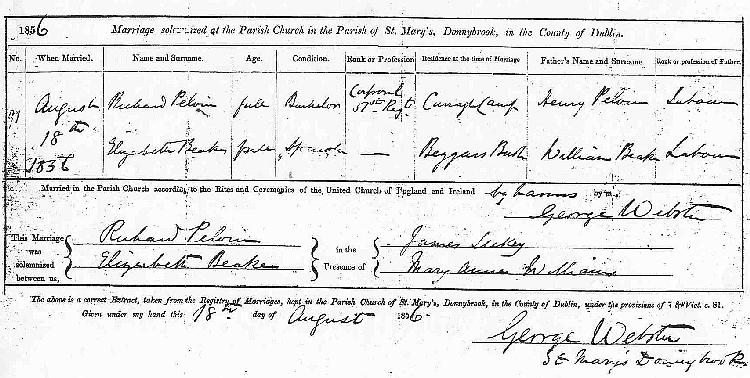 1856 Marriage solemnized at the Parish Church in the Parish of St. Mary's, Donnybrook, in the County of Dublin.
No. When Married. Name and Surname. Age. Condition. Rank or Profession Residence at the time of Marriage Father's Name and Surname Rank or profession of Father.
August 18th 1856 Richard Pelvin full Bachelor Corporal Regt. Curragh Camp Henry Pelvin Labour
Elizabeth Beake full Spinster — Beggars Bush William Beake Labour
Married in the Parish Church according to the Rites and Ceremonies of the United Church of England and Ireland by banns by me,
George Webster
This Marriage was solemnized between us, Richard Pelvin Elizabeth Beake in the Presence of James Mary Anne Williams
The above is a correct Extract, taken from the Registry of Marriages, kept in the Parish Church of St. Mary's, Donnybrook, in the County of Dublin, under the provisions of 7 & 8 Vict. c. 81.
Given under my hand this 18th day of August 1856.
George Webster
St Mary's Donnybrook